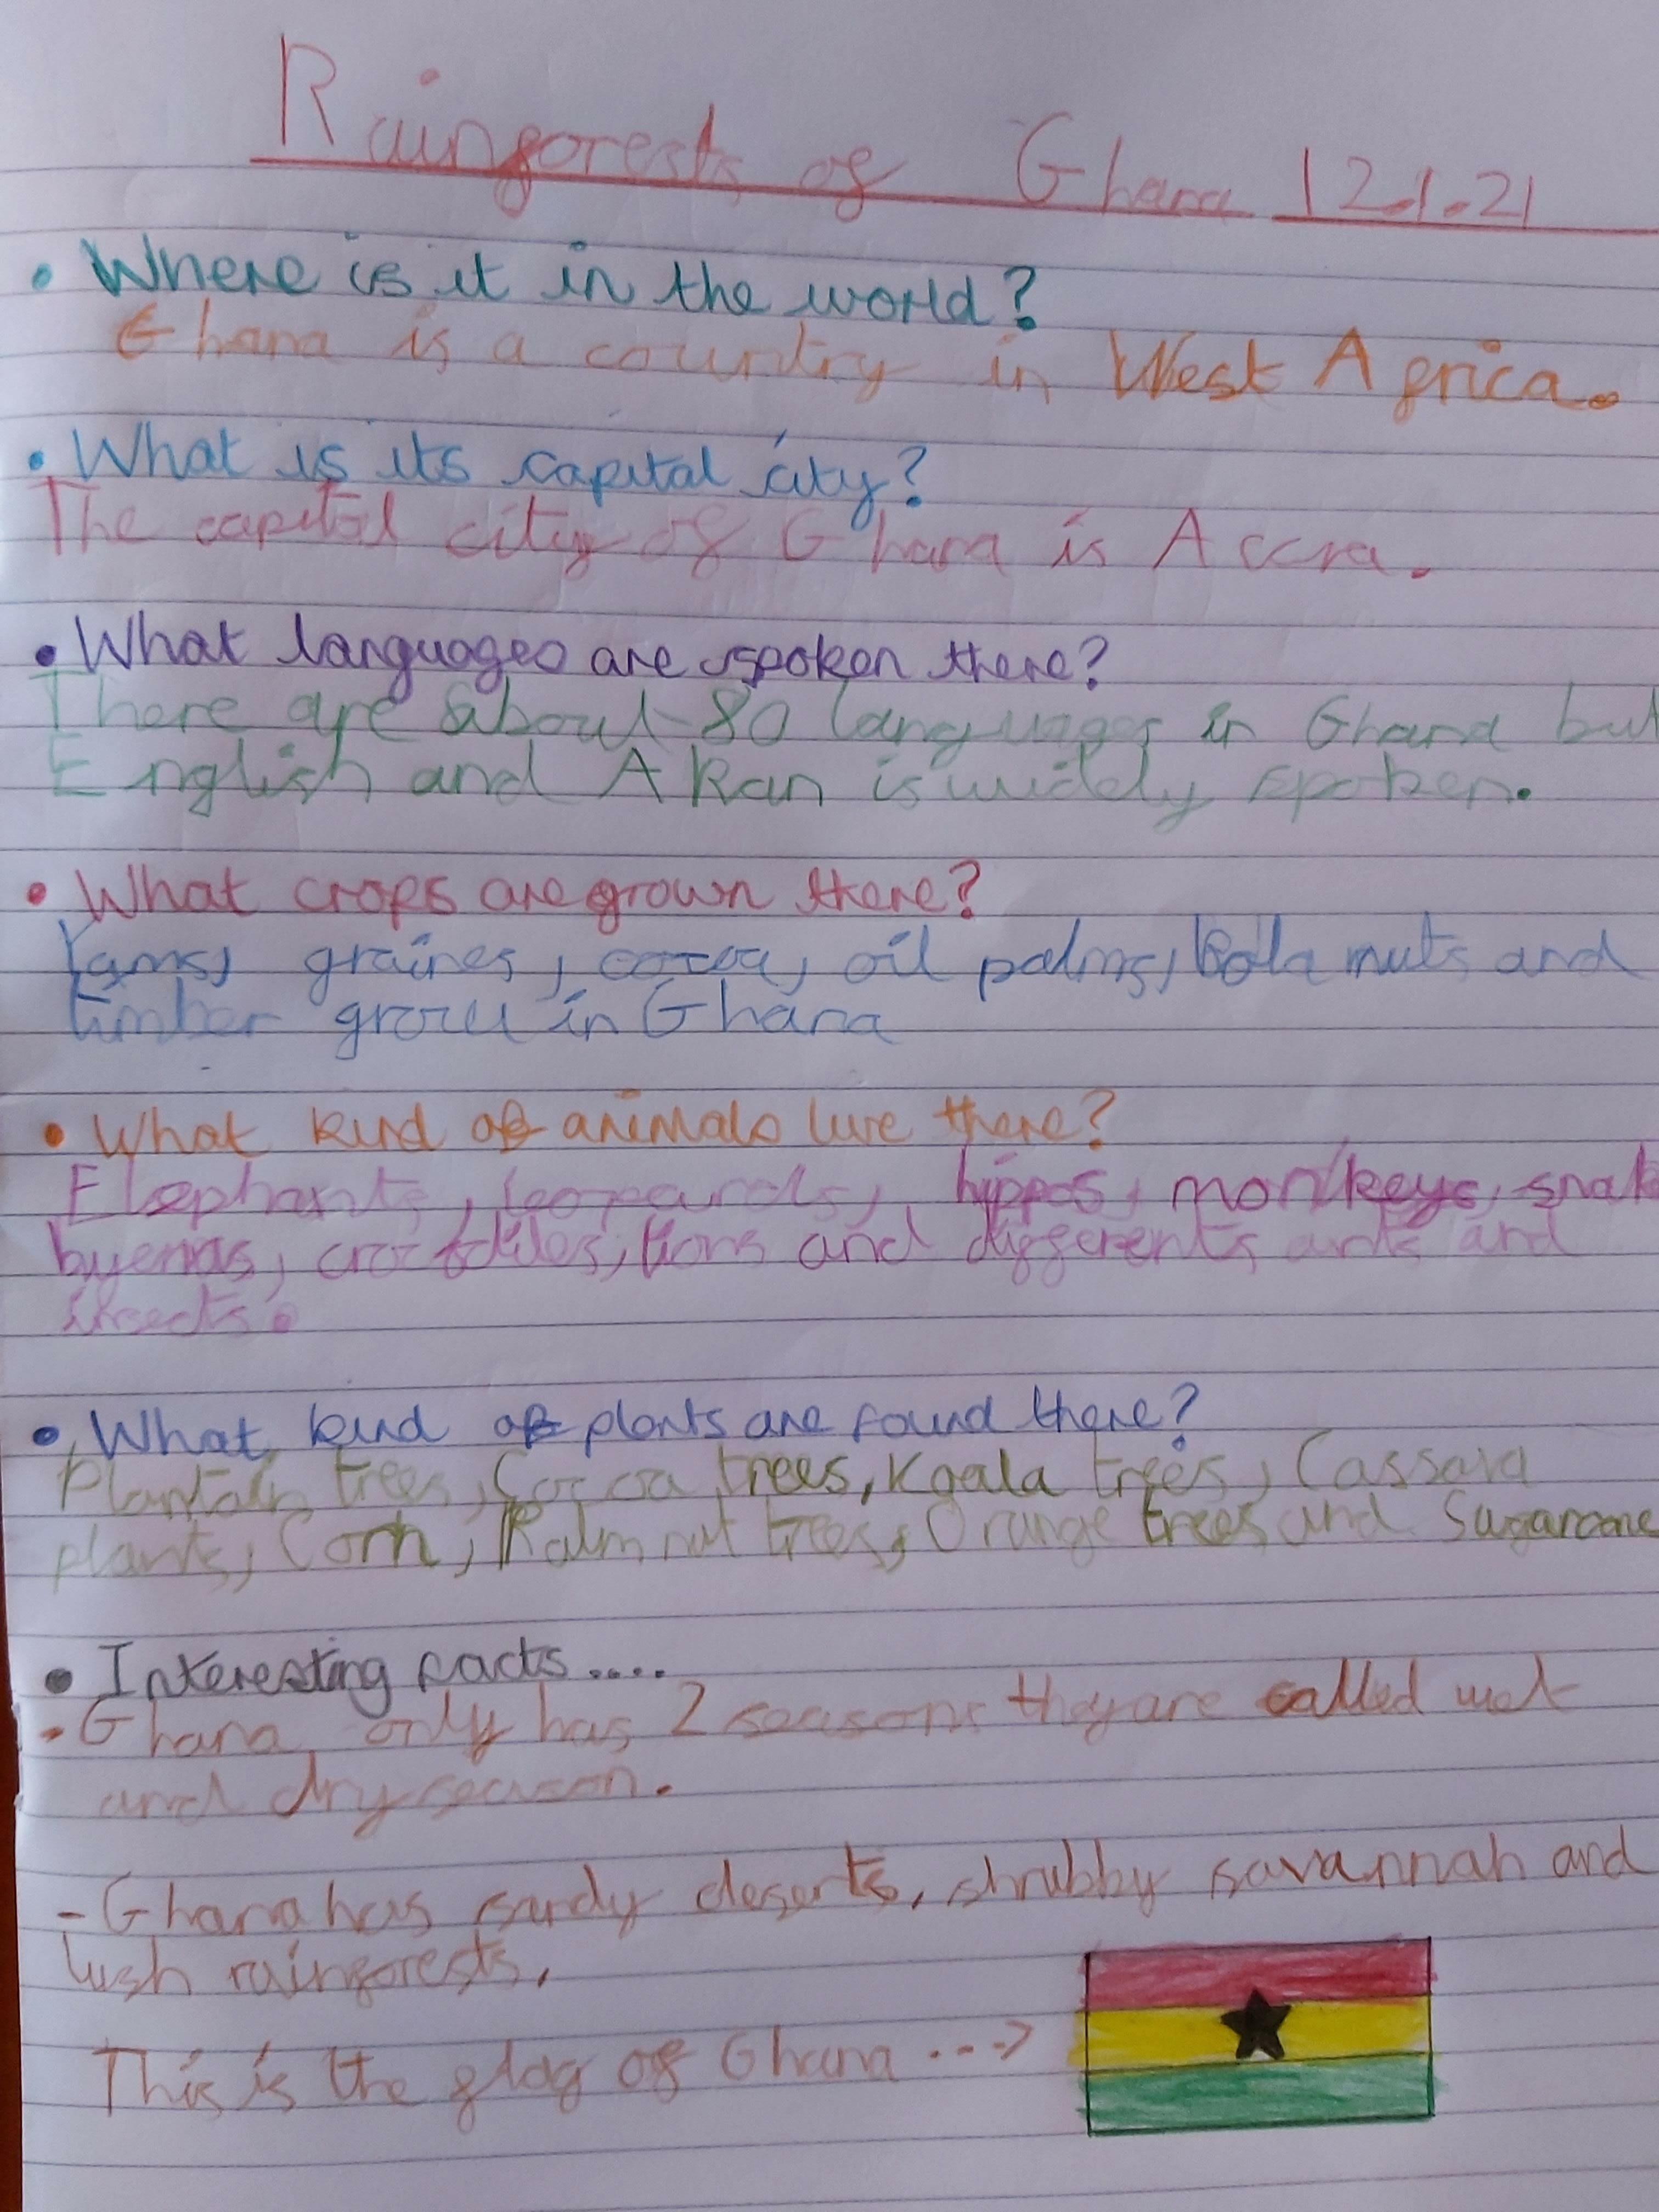 Rainforests of Ghana 12.1.21
• Where is it in the world?
Ghana is a country in West Africa.
• What is its capital city?
The capital city of Ghana is Accra.
• What languages are spoken there?
There are about 80 languages in Ghana but
English and Akan is widely spoken.
• What crops are grown there?
Yams, graines, cocoa, oil palms, kola nuts and
timber grow in Ghana
• What kind of animals live there?
Elephants, leopards, hippos, monkeys, snak
hyenas, crocodiles, lions and differents ants and
insects.
• What kind of plants are found there?
Plantain trees, Cocoa trees, Koala trees, Cassava
plants, Corn, Palm nut trees, Orange trees and Sugarcane
• Interesting facts....
- Ghana only has 2 seasons they are called wet
and dry season.
- Ghana has sandy deserts, shrubby savannah and
lush rainforests.
This is the flag of Ghana --->